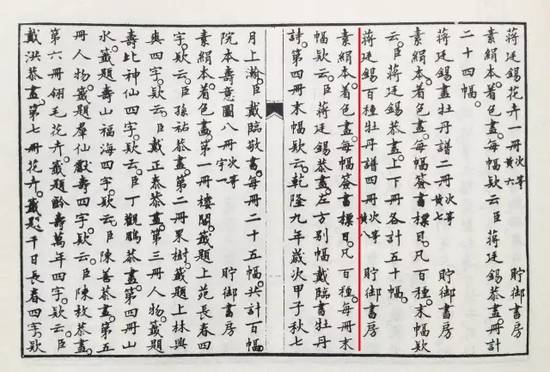 蔣廷錫花卉一冊 次等黃六 貯御書房
素絹本。着色畫。每幅款云臣蔣廷錫恭畫。冊計
二十四幅。
蔣廷錫畫牡丹譜二冊 次等黃七 貯御書房
素絹本。着色畫。每幅簽書標目。凡百種。末幅款
云。臣蔣廷錫恭畫。上下冊各計五十幅。
蔣廷錫百種牡丹譜四冊 次等黃八 貯御書房
素絹本。着色畫。每幅簽書標目。凡百種。每冊末
幅款云。臣蔣廷錫恭畫。左方別幅戴臨書牡丹
詩。第四冊末幅款云。乾隆九年歲次甲子秋七
月上澣。臣戴臨敬書。每冊二十五幅。共計百幅。
院本壽意圖八冊 次等宇一 貯御書房
素絹本。着色畫。第一冊樓閣。籤題上苑長春四
字。款云。臣孫祜恭畫。第二冊果樹。籤題上林與
與四字。款云。臣戴正泰恭畫。第三冊人物。籤題
壽比神仙四字。款云。臣丁觀鵬恭畫。第四冊山
水。籤題壽山福海四字。款云。臣陳善恭畫。第五
冊人物。籤題羣仙獻壽四字。款云。臣陳枚恭畫。
第六冊翎毛花卉。籤題齡壽萬年四字。款云。臣
戴洪恭畫。第七冊花卉。籤題千日長春四字。款